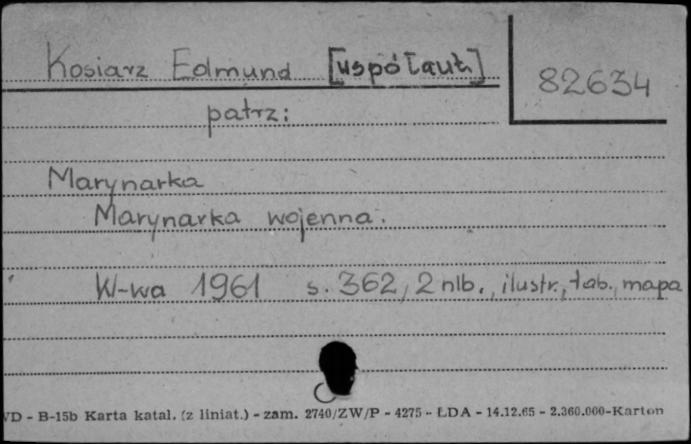 Kosiarz Edmund [współaut.]
82634
patrz:
Marynarka
Marynarka wojenna.
W-wa 1961 s. 362, 2 nlb., ilustr., tab., mapa
VD - B-15b Karta katal. (z liniat.) - zam. 2740/ZW/P - 4275 - ŁDA - 14.12.65 - 2.360.000-Karton